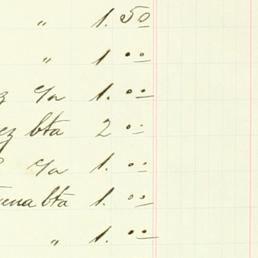 " 1.50
" 1.00
c/a 1.00
ez bta 2 00
c/a 1.00
bta 1.00
" 1.00